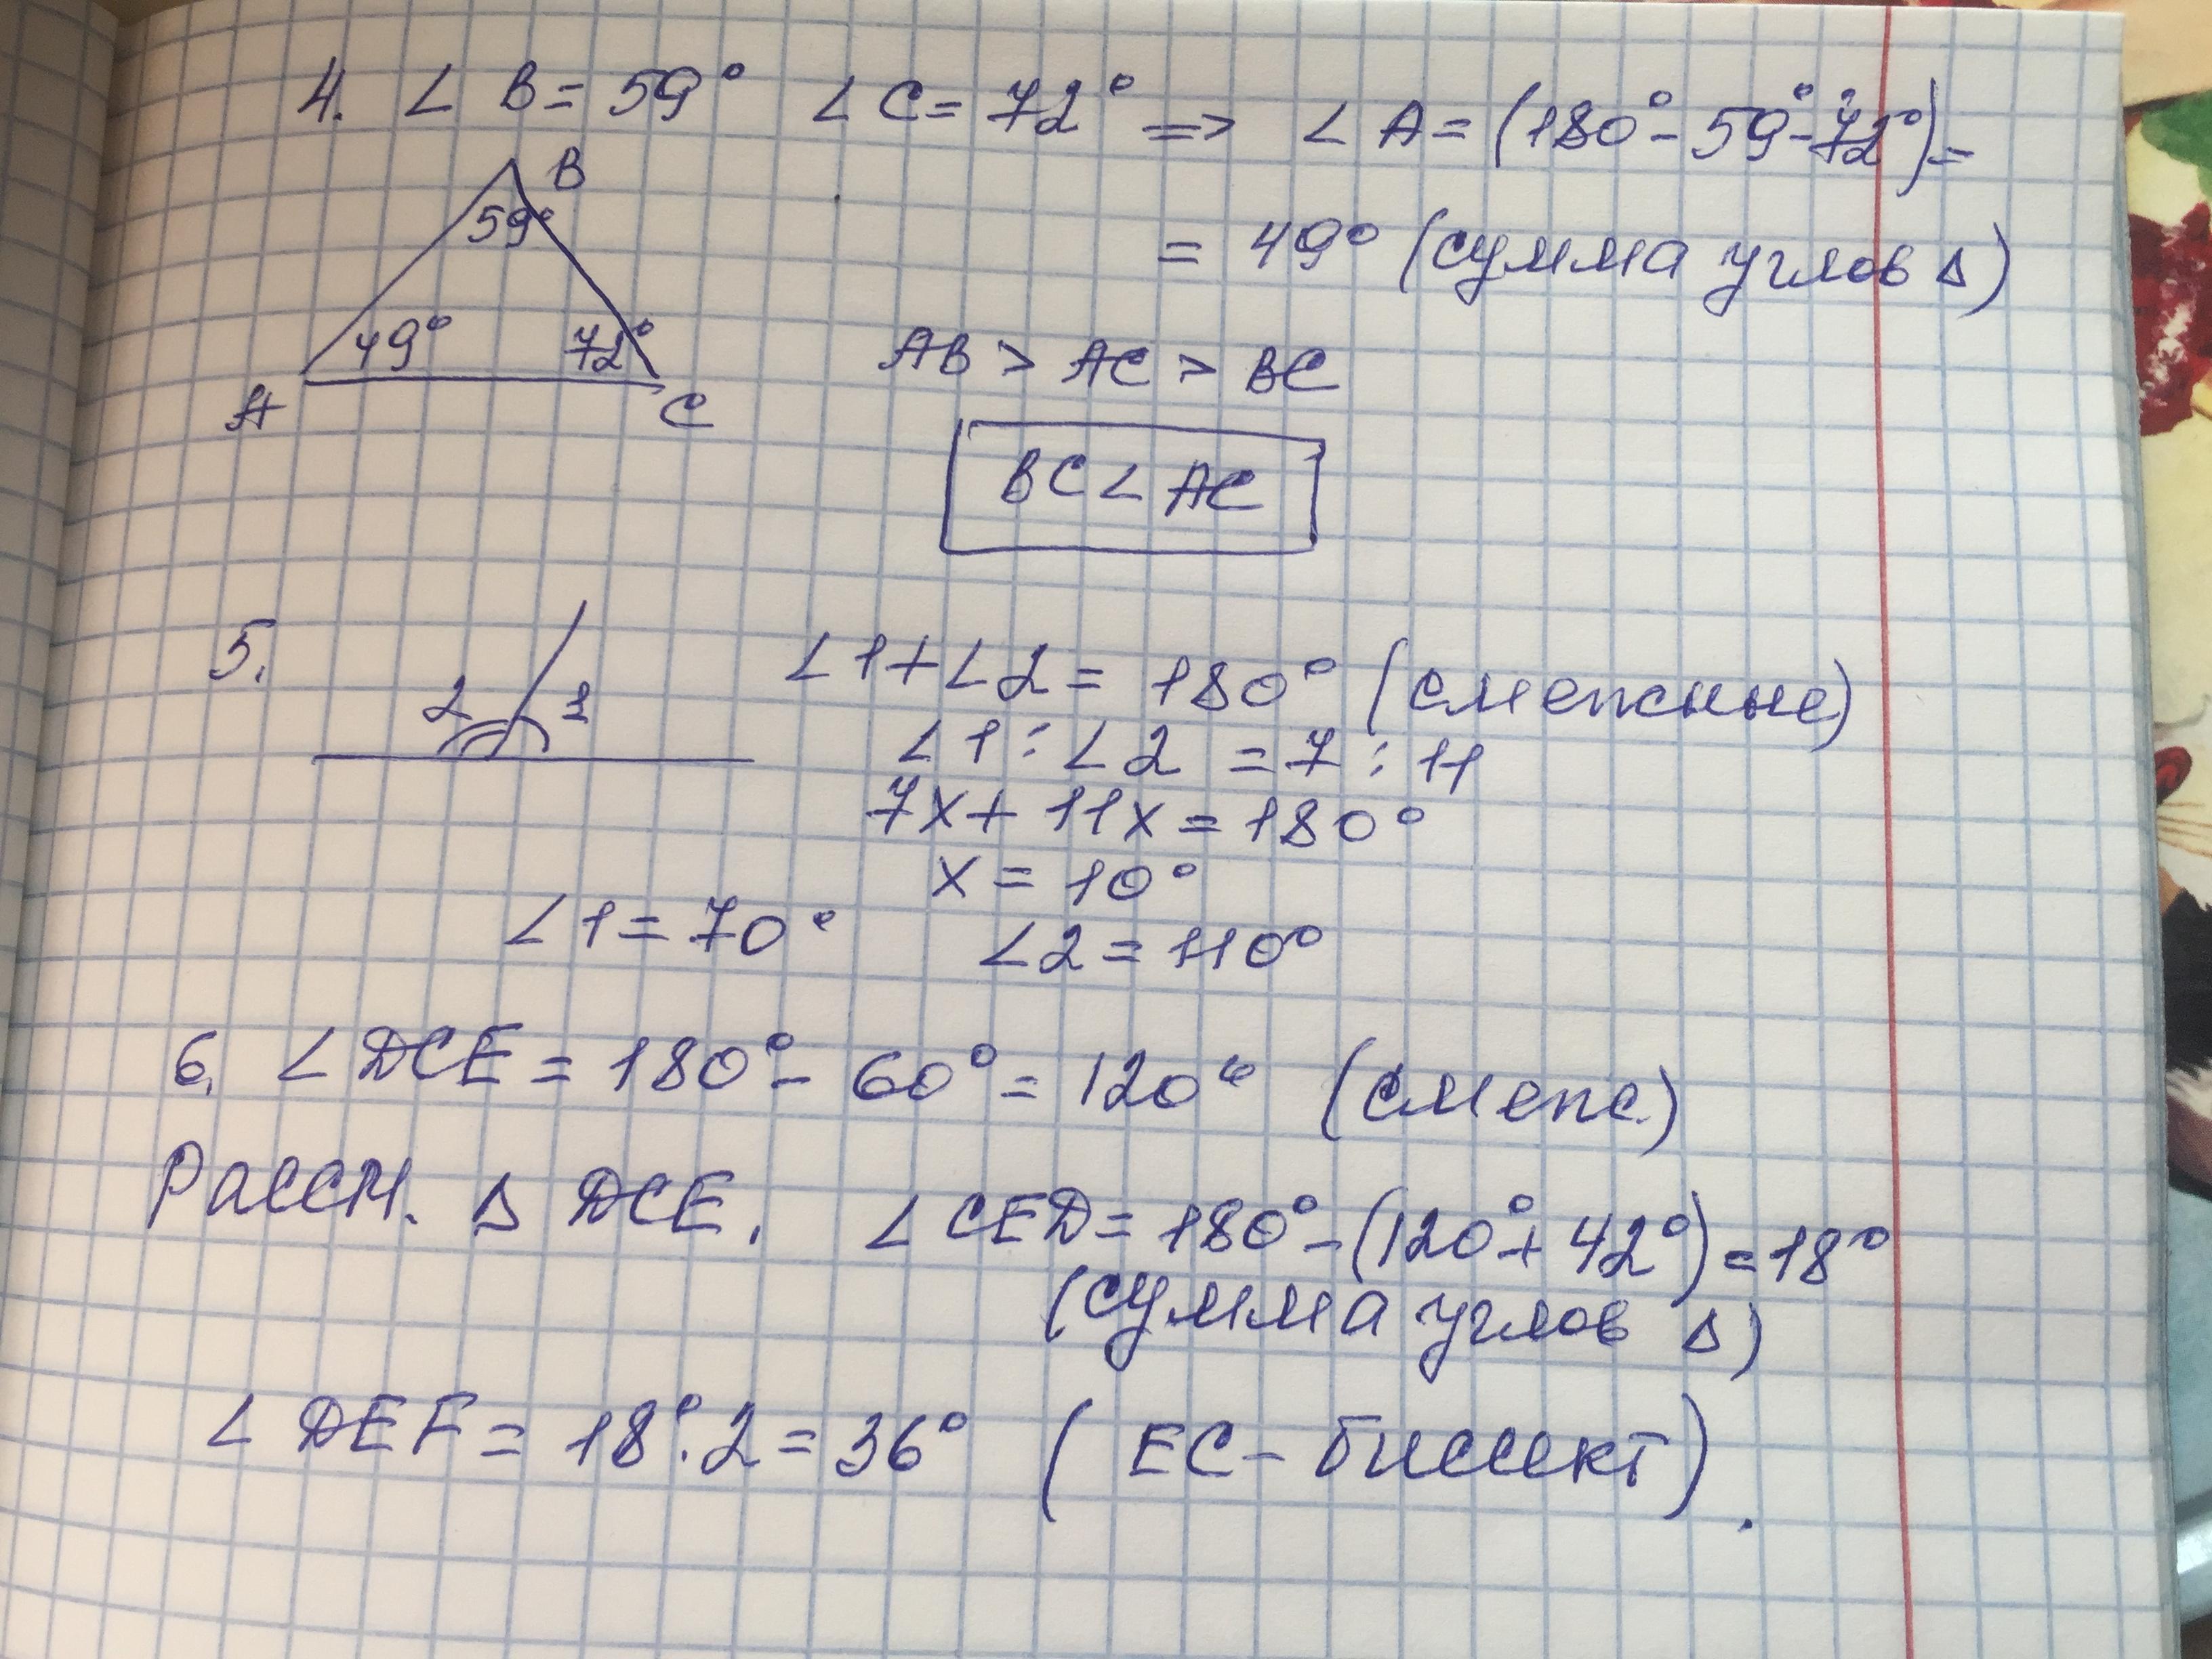 4. ∠ B = 59° ∠ C = 72° => ∠ A = (180° - 59° - 72°) =
= 49° (сумма углов Δ)
B
59°
49° 72°
A C
AB > AC > BC
BC < AC
5. ∠1 + ∠2 = 180° (смежные)
2 1
∠1 : ∠2 = 7 : 11
7x + 11x = 180°
x = 10°
∠1 = 70° ∠2 = 110°
6. ∠ DCE = 180° - 60° = 120° (смеж.)
Рассм. Δ DCE. ∠ CED = 180° - (120° + 42°) = 18°
(сумма углов Δ)
∠ DEF = 18° · 2 = 36° (EC - биссект).